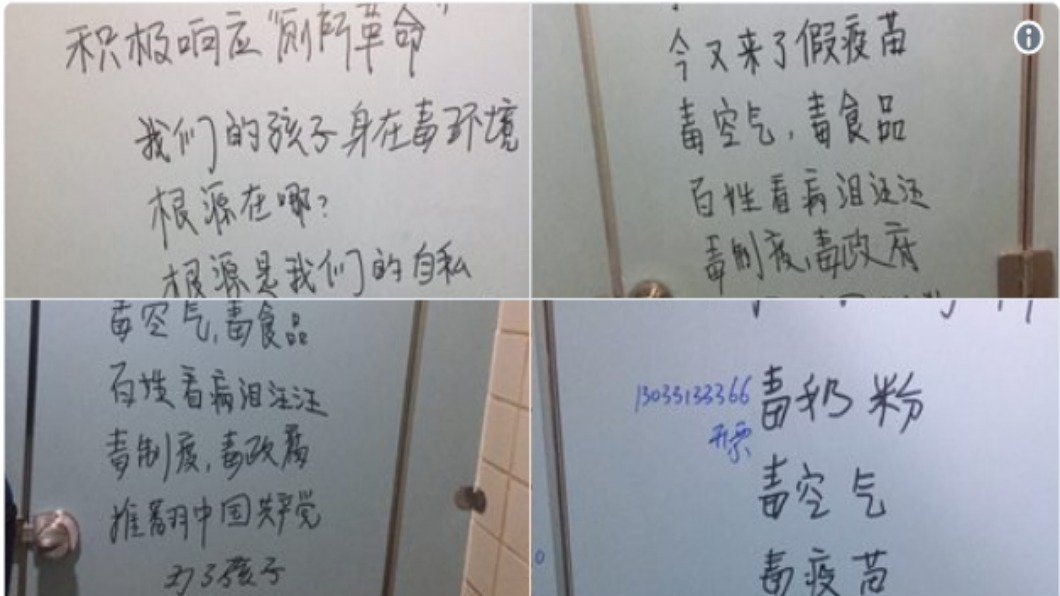 积极响应“厕所革命”
我们的孩子身在毒环境
根源在哪？
根源是我们的自私
今又来了假疫苗
毒空气，毒食品
百性看病泪汪汪
毒制度，毒政府
毒空气，毒食品
百性看病泪汪汪
毒制度，毒政府
推翻中国共产党
为了孩子
13033133366
开票
毒奶粉
毒空气
毒疫苗